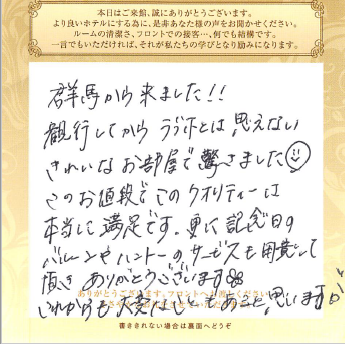 本日はご来館、誠にありがとうございます。
より良いホテルにする為に、是非あなた様の声をお聞かせください。
ルームの清潔さ、フロントでの接客…、何でも結構です。
一言でもいただければ、それが私たちの学びとなり励みになります。
群馬から来ました!!
観行してから ラブホとは思えない
きれいなお部屋で驚きました
このお値段でこのクオリティーは
本当に満足です。更に記念日の
バルーンや のサービスも用意して
頂き ありがとうございます
ありがとうございます。フロントへお渡しください
これからも大変なこともあると思いますが
書ききれない場合は裏面へどうぞ